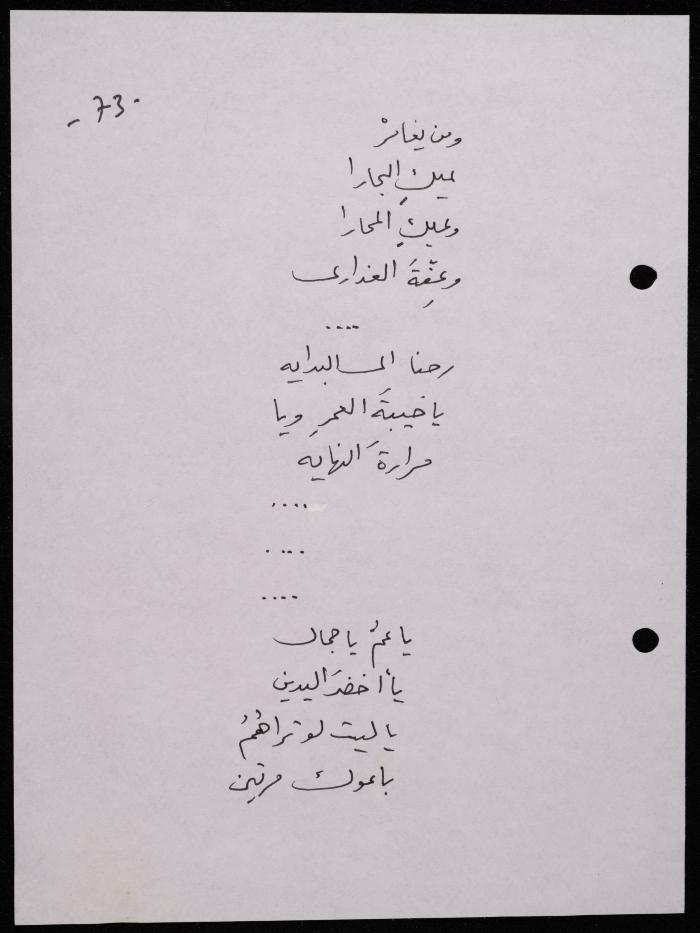 - 73 -
ومن يغامرْ
يملكِ البحارا
ويملكِ المحارا
وعِفّةَ العذارى
....
رحنا الى البدايه
يا خيبةَ العمرِ ويا
مرارةَ النهايه
....
....
....
يا عمُّ يا جمال
يا أخضرَ اليدين
يا ليت لو تراهُمُ
باعوك مرتين